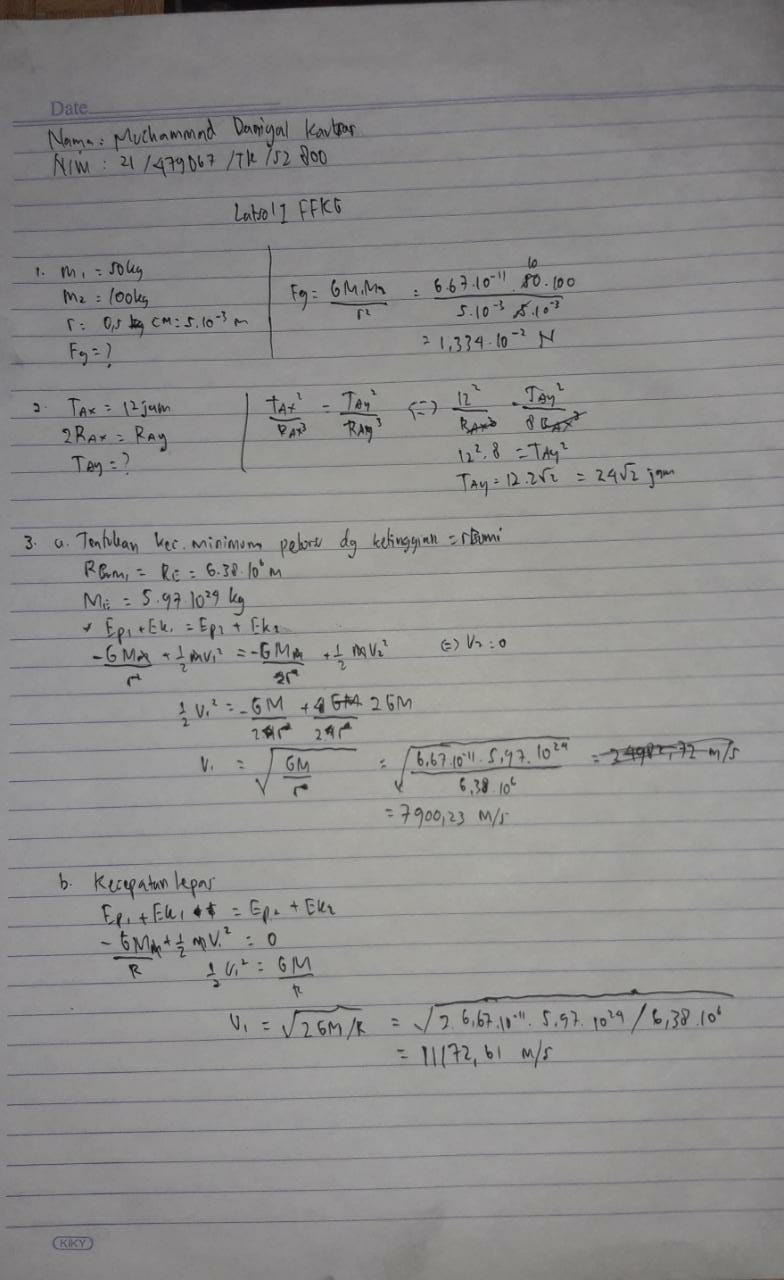 Date
Nama : Muchammad Daniyal Kautsar
NIM : 21/479067/TK/52800
Latsol 1 FFKG
1. m₁ = 50kg
m₂ = 100kg
r = 0,5 cm = 5.10⁻³ m
Fg = ?
Fg = GM₁M₂/r² = 6.67.10⁻¹¹.50.100/5.10⁻³.5.10⁻³
= 1,334.10⁻² N
2. TAx = 12 jam
2RAx = RAy
TAy = ?
TAx²/RAx³ = TAy²/RAy³ <=> 12²/RAx³ = TAy²/8RAx³
12².8 = TAy²
TAy = 12.2√2 = 24√2 jam
3. a. Tentukan kec. minimum peluru dg ketinggian = rBumi
RBumi = RE = 6.38.10⁶ m
ME = 5.97.10²⁴ kg
Ep₁ + Ek₁ = Ep₂ + Ek₂
-GMm/r + ½mv₁² = -GMm/2r + ½mv₂² <=> V₂ = 0
½V₁² = -GM/2r + 2GM/2r
V₁ = √GM/r = √6,67.10⁻¹¹.5,97.10²⁴/6,38.10⁶ = 2498,72 m/s
= 7900,23 m/s
b. Kecepatan lepas
Ep₁ + Ek₁ = Ep₂ + Ek₂
-GMm/R + ½mV₁² = 0
½V₁² = GM/R
V₁ = √2GM/R = √2.6,67.10⁻¹¹.5,97.10²⁴/6,38.10⁶
= 11172,61 m/s
KIKY